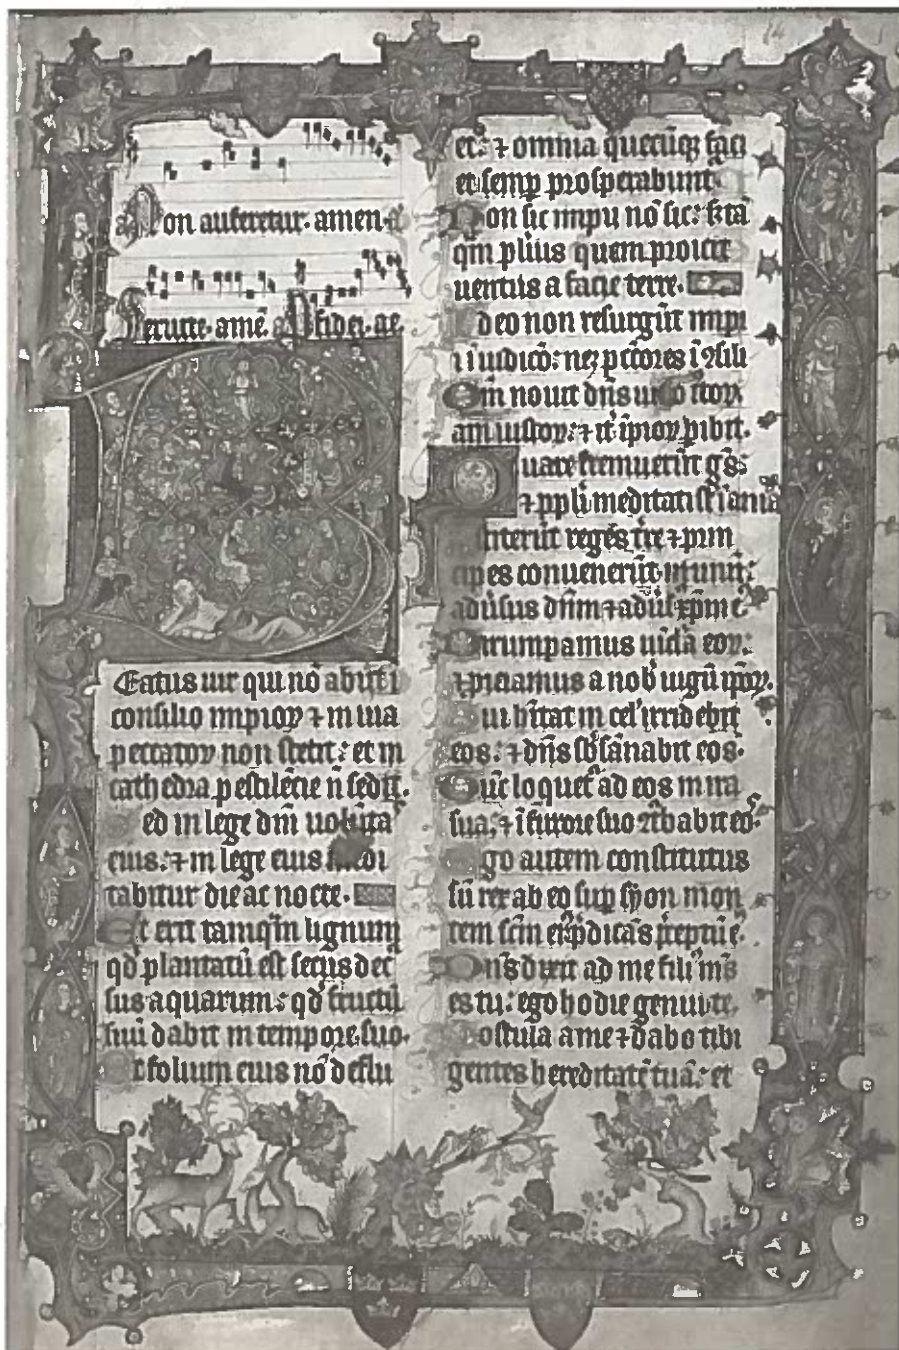 Non auferetur. amen. a
ferutit. amē. a fidei. ae.
Eatus uir qui nō abiit ī
consilio impioꝝ ⁊ in uia
peccatoꝝ non stetit: et in
cathedra pestilēcie n̄ sedit.
Sed in lege dn̄i uolūta
eius: ⁊ in lege eius medi
tabitur die ac nocte.
Et erit tamqͣm lignum
qd̄ plantatū est secus dec
sus aquarum: qd̄ fructū
suū dabit in tempore suo.
Et folium eius nō deflu
et: ⁊ omnia quecūqꝫ faci
et semꝑ prosperabunt.
Non sic impii nō sic: s; tā
qm̄ pluis quem proicit
uentus a facie terre.
Ideo non resurgūt impi
i ī iudicō: neqꝫ pctōres ī ꝯsili
Qm̄ nouit dn̄s
am iustoꝝ: ⁊ it̄ īpioꝝ ꝑibit.
uare fremuerūt gēs:
⁊ ppl̄i meditati st̄ īania
Astiterūt reges tr̄e ⁊ prin
cipes conuenerūt in unū:
aduersus dn̄m ⁊ adūs xp̄m eͥ
Dirumpamus uīcla eoꝝ:
⁊ piciamus a nob̄ iugū ip̄oꝝ.
Qui hītat in cel' irridebit
eos: ⁊ dn̄s sb̄sānabit eos.
Tūc loquetͬ ad eos in ira
sua, ⁊ ī furore suo ꝯtbabit eoˢ.
Ego autem constitutus
sū rex ab eo suꝑ syon mon
tem scm̄ eiꝰ p̄dicās p̄ceptū eͥ.
Dn̄s dixit ad me filiꝰ mꝰ
es tu: ego hodie genui te.
Postula a me ⁊ dabo tibi
gentes hereditatē tuā: et